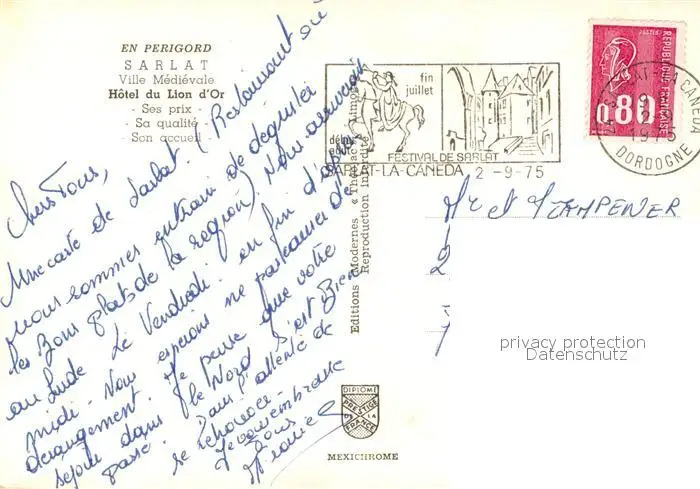 EN PERIGORD
SARLAT
Ville Médiévale
Hôtel du Lion d'Or
- Ses prix -
- Sa qualité -
- Son accueil -
Chers Tous,
Une carte de Sarlat. (Restaurant où
nous sommes entrain de déguster
les Bons plats de la région). Nous arriverons
au Lude le Vendredi en fin d'après
midi. Nous espérons ne pas causer de
dérangement. Je pense que votre
séjour dans le Nord s'est Bien
passé. Dans l'attente de
se revoir.
Je vous embrasse
Tous
Editions Modernes « Théojac »
Reproduction interdite
fin
juillet
début
août
FESTIVAL DE SARLAT
SARLAT-LA-CANEDA 2-9-75
POSTES
REPUBLIQUE FRANÇAISE
0,80
SARLAT-LA CANEDA
1975
DORDOGNE
Mr et
2
privacy protection
Datenschutz
DIPLOME
PRESTIGE
DE LA
FRANCE
MEXICHROME